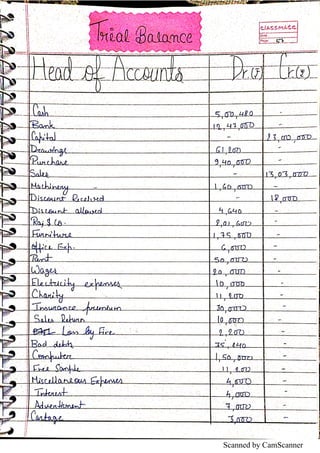 Trial Balance
classmate
Date
Page 57
Head of Accounts Dr.(₹) Cr.(₹)
Cash 5,00,480
Bank 12,47,000 -
Capital - 23,00,000
Drawings 61,200 -
Purchase 9,40,000 -
Sales - 13,03,000
Machinery - 1,60,000 -
Discount Received - 18,000
Discount allowed 4,640 -
Raj & Co. 8,01,600 -
Furniture 1,75,000 -
Office Exp. 6,000 -
Rent 50,000 -
Wages 20,000 -
Electricity expenses 10,000 -
Charity 11,200 -
Insurance premium 30,000 -
Sales Return 10,600 -
Loss by Fire 2,200 -
Bad debts 35,240 -
Computer 1,50,000 -
Free Sample 11,200 -
Miscellaneous Expenses 4,000 -
Interest 4,000 -
Advertiment 7,000 -
Cartage 3,000 -
Scanned by CamScanner